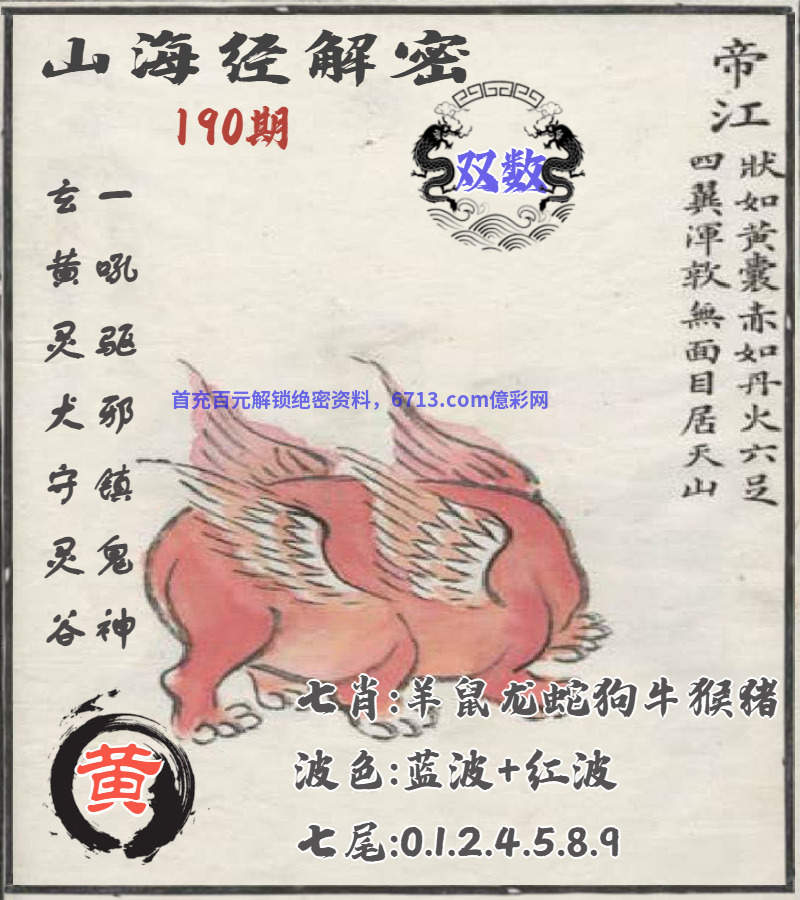 山海经解密
190期
双数
帝江
狀如黃囊赤如丹火六足
四翼渾敦無面目居天山
玄黄灵犬守灵谷
一吼驱邪镇鬼神
首充百元解锁绝密资料，6713.com億彩网
七肖:羊鼠龙蛇狗牛猴猪
波色:蓝波+红波
七尾:0.1.2.4.5.8.9
黄